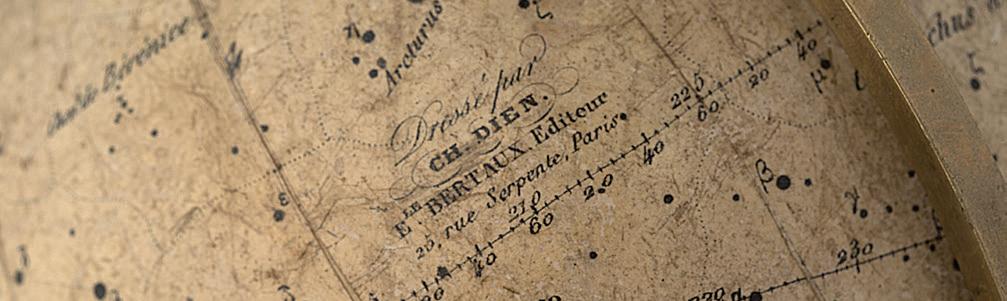 Arcturus
Dressé par
CH. DIEN.
E^LE BERTAUX Editeur
25, rue Serpente, Paris.
210
225
40
60
20
40
60
20
40
220
230
β
γ
μ
ι
ζ
η
ε
ζ
τ
chus